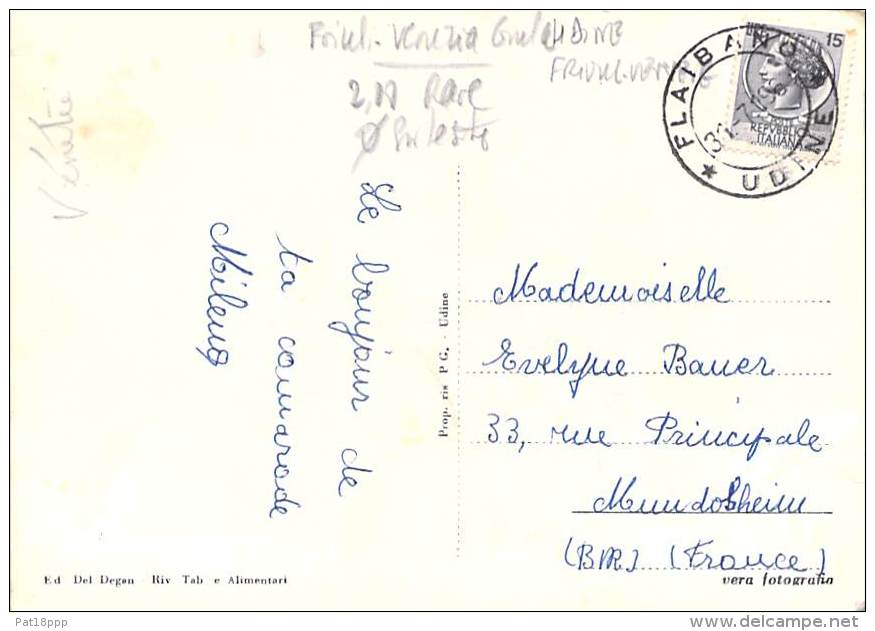 Friul-Venezia Giul UDINE
FRIOUL-VENETIE
2,10 Rare
Vénétie
15
REPVBBLICA
ITALIANA
* FLAIBANO *
UDINE
Le bonjour de
ta camarade
Milena
Prop. ris P G, - Udine
Mademoiselle
Evelyne Bauer
33, rue Principale
Mundolsheim
(BR) (France)
Ed Del Degan Riv Tab e Alimentari
vera fotografia
Pat18ppp
www.delcampe.net